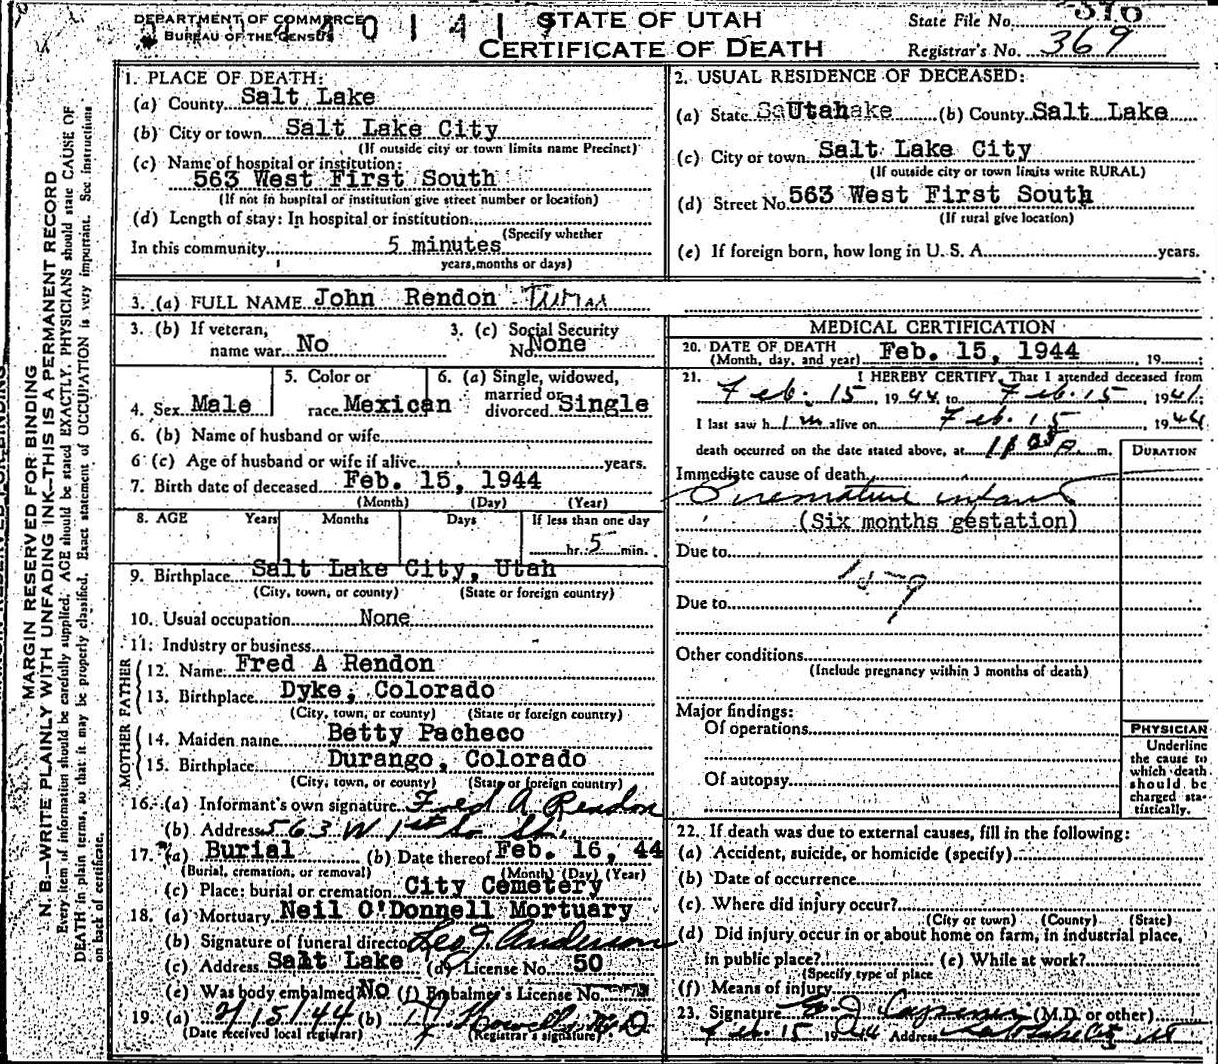 DEPARTMENT OF COMMERCE
BUREAU OF THE CENSUS
STATE OF UTAH
CERTIFICATE OF DEATH
State File No.
Registrar's No. 369
MARGIN RESERVED FOR BINDING
N. B.—WRITE PLAINLY WITH UNFADING INK—THIS IS A PERMANENT RECORD
Every item of information should be carefully supplied. AGE should be stated EXACTLY. PHYSICIANS should state CAUSE OF
DEATH in plain terms, so that it may be properly classified. Exact statement of OCCUPATION is very important. See instructions
on back of certificate.
1. PLACE OF DEATH:
(a) County Salt Lake
(b) City or town Salt Lake City
(If outside city or town limits name Precinct)
(c) Name of hospital or institution:
563 West First South
(If not in hospital or institution give street number or location)
(d) Length of stay: In hospital or institution
(Specify whether
In this community 5 minutes
years, months or days)
2. USUAL RESIDENCE OF DECEASED:
(a) State Utah (b) County Salt Lake
(c) City or town Salt Lake City
(If outside city or town limits write RURAL)
(d) Street No. 563 West First South
(If rural give location)
(e) If foreign born, how long in U. S. A. years.
3. (a) FULL NAME John Rendon
3. (b) If veteran, name war No
3. (c) Social Security No. None
4. Sex Male
5. Color or race Mexican
6. (a) Single, widowed, married or divorced Single
6. (b) Name of husband or wife
6 (c) Age of husband or wife if alive years.
7. Birth date of deceased Feb. 15, 1944
(Month) (Day) (Year)
8. AGE Years Months Days If less than one day
hr. 5 min.
9. Birthplace Salt Lake City, Utah
(City, town, or county) (State or foreign country)
10. Usual occupation None
11. Industry or business
FATHER
12. Name Fred A Rendon
13. Birthplace Dyke, Colorado
(City, town, or county) (State or foreign country)
MOTHER
14. Maiden name Betty Pacheco
15. Birthplace Durango, Colorado
(City, town, or county) (State or foreign country)
16. (a) Informant's own signature Fred A Rendon
(b) Address 563 W 1st So St.
17. (a) Burial (b) Date thereof Feb. 16, 44
(Burial, cremation, or removal) (Month) (Day) (Year)
(c) Place: burial or cremation City Cemetery
18. (a) Mortuary Neil O'Donnell Mortuary
(b) Signature of funeral director Leo J. Anderson
(c) Address Salt Lake (d) License No. 50
(e) Was body embalmed No (f) Embalmer's License No.
19. (a) 2/15/44 (b)
(Date received local registrar) (Registrar's signature)
MEDICAL CERTIFICATION
20. DATE OF DEATH
(Month, day, and year) Feb. 15, 1944, 19
21. I HEREBY CERTIFY, That I attended deceased from
Feb. 15, 1944 to Feb. 15, 1944
I last saw him alive on Feb 15, 1944
death occurred on the date stated above, at m.
DURATION
Immediate cause of death
Premature infant
(Six months gestation)
Due to
159
Due to
Other conditions
(Include pregnancy within 3 months of death)
Major findings:
Of operations
Of autopsy
PHYSICIAN
Underline
the cause to
which death
should be
charged sta-
tistically.
22. If death was due to external causes, fill in the following:
(a) Accident, suicide, or homicide (specify)
(b) Date of occurrence
(c) Where did injury occur?
(City or town) (County) (State)
(d) Did injury occur in or about home on farm, in industrial place,
in public place? (e) While at work?
(Specify type of place
(f) Means of injury
23. Signature (M.D. or other)
Feb. 15 1944 Address